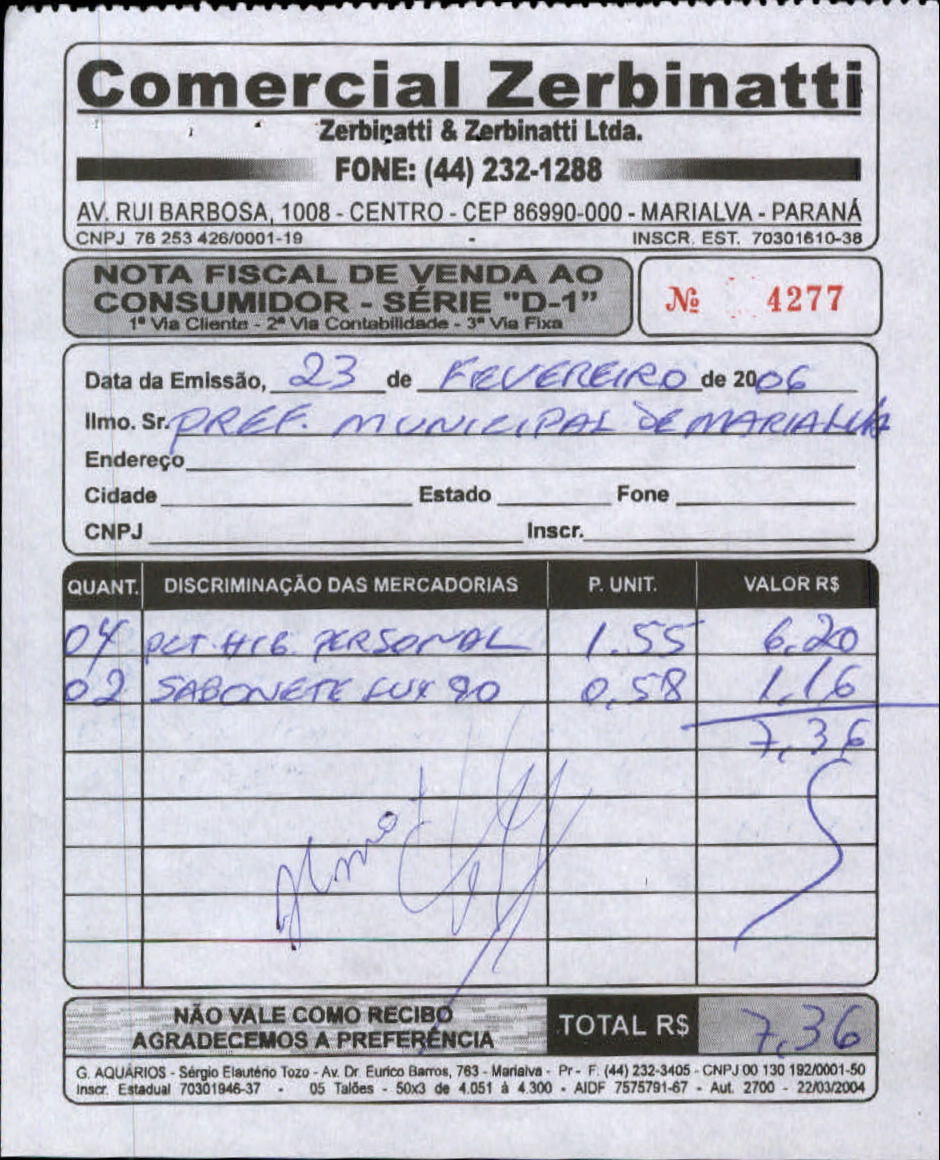 Comercial Zerbinatti
Zerbinatti & Zerbinatti Ltda.
FONE: (44) 232-1288
AV. RUI BARBOSA, 1008 - CENTRO - CEP 86990-000 - MARIALVA - PARANÁ
CNPJ 76 253 426/0001-19 - INSCR. EST. 70301610-38
NOTA FISCAL DE VENDA AO
CONSUMIDOR - SÉRIE "D-1"
1ª Via Cliente - 2ª Via Contabilidade - 3ª Via Fixa
Nº 4277
Data da Emissão, 23 de FEVEREIRO de 2006
Ilmo. Sr. PREF. MUNICIPAL DE MARIALVA
Endereço
Cidade Estado Fone
CNPJ Inscr.
QUANT. DISCRIMINAÇÃO DAS MERCADORIAS P. UNIT. VALOR R$
04 PCT HIG. PERSONAL 1.55 6,20
02 SABONETE LUX 90 0,58 1,16
7,36
NÃO VALE COMO RECIBO
AGRADECEMOS A PREFERÊNCIA
TOTAL R$ 7,36
G. AQUÁRIOS - Sérgio Elautério Tozo - Av. Dr. Eurico Barros, 763 - Marialva - Pr - F. (44) 232-3405 - CNPJ 00 130 192/0001-50
Inscr. Estadual 70301946-37 - 05 Talões - 50x3 de 4.051 à 4.300 - AIDF 7575791-67 - Aut. 2700 - 22/03/2004